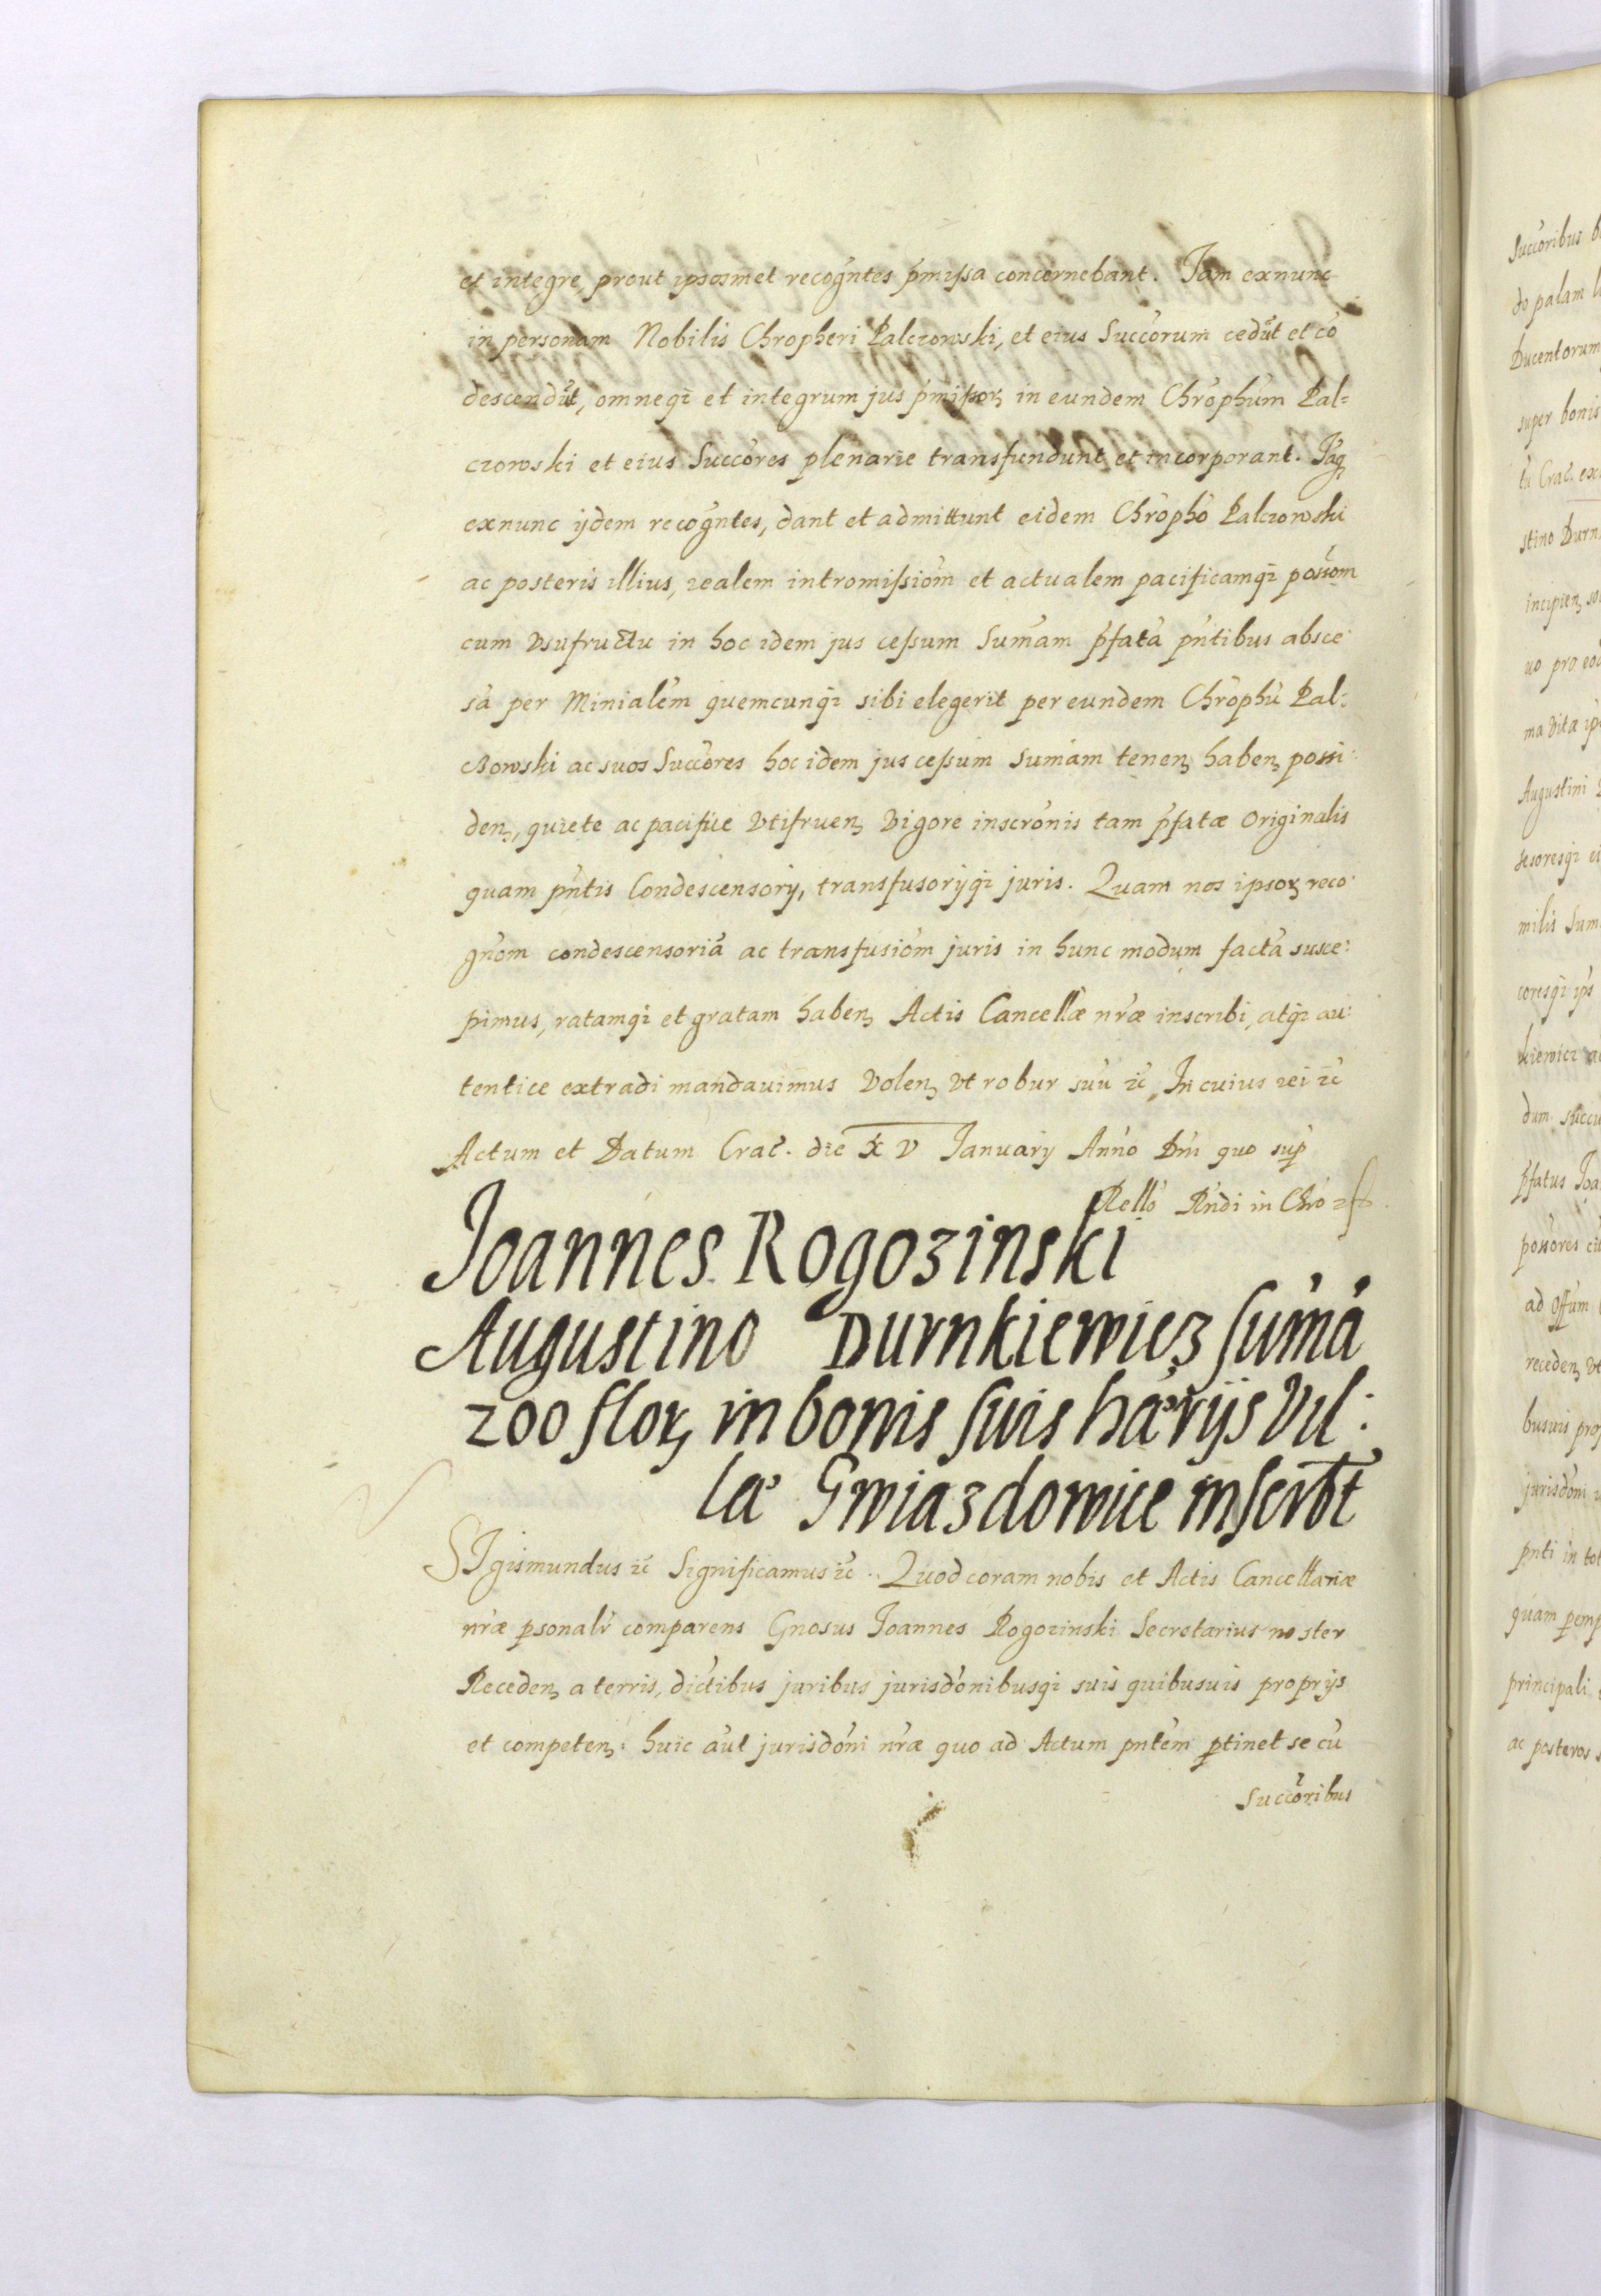 et integre, prout ipsosmet recogńtes p̃missa concernebant. Jam exnunc
in personam Nobilis Chropheri Palczowski, et eius Succorum cedūt et cō
descendūt, omneq₃ et integrum jus p̃missoꝝ in eundem Chrophum Pal=
czowski et eius Succores plenarie transfundunt et incorporant. Jāq₃
exnunc ijdem recogńtes, dant et admittunt eidem Chropho Palczowski
ac posteris illius, realem intromissiom̃ et actualem pacificamq₃ possom̃
cum vsufructu in hoc idem jus cessum Sum̃am p̃fatā pñtibus absce:
sā per Minialem quemcunq₃ sibi elegerit per eundem Chrophū Pal:
czowski ac suos Succores hoc idem jus cessum sum̃am tenenꝫ habenꝫ possi:
denꝫ, quiete ac pacifice vtifruenꝫ vigore inscronis tam p̃fatæ originalis
quam pñtis Condescensorÿ, transfusorijq₃ juris. Quam nos ipsoꝝ reco:
gñom condescensoriā ac transfusiom̃ juris in hunc modum factā susce:
pimus, ratamq₃ et gratam habenꝫ Actis Cancellæ nr̃æ inscribi, atq₃ au:
tentice extradi mandauimus volenꝫ vt robur suū ꝛc̃, In cuius rei ꝛc̃
Actum et Datum Crac̃. die XV Januarÿ Anno Dn̄i quo sup̃
Rello Rñdi in Chro ꝛf
Joannes Rogozinski
Augustino Durnkiewicz sum̃ā
200 floꝝ in bonis suis hærijs Vil:
læ Gwiazdowice inscribt
SIgismundus ꝛc̃ Significamus ꝛc̃. Quod coram nobis et Actis Cancellariæ
nr̃æ p̱sonalr̃ comparens Gnosus Joannes Rogozinski Secretarius noster
Recedenꝫ a terris, dictibus juribus jurisdonibusq₃ suis quibusuis proprijs
et competenꝫ: huic aũt jurisdoni nr̃æ quo ad Actum pntem p̱tinet se cū
Succoribus